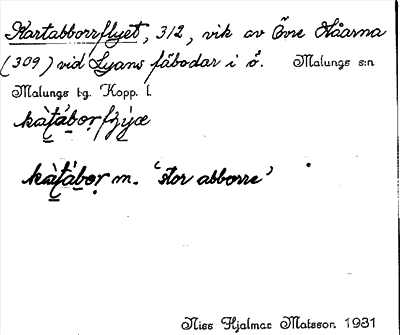 Kartabborrflyet, 312, vik av Övre Håarna
(309) vid Lyans fäbodar i ö. Malungs s:n
Malungs tg. Kopp. l.
kàtábor
kàtábor m. 'stor abborre'
Nils Hjalmar Matsson 1931